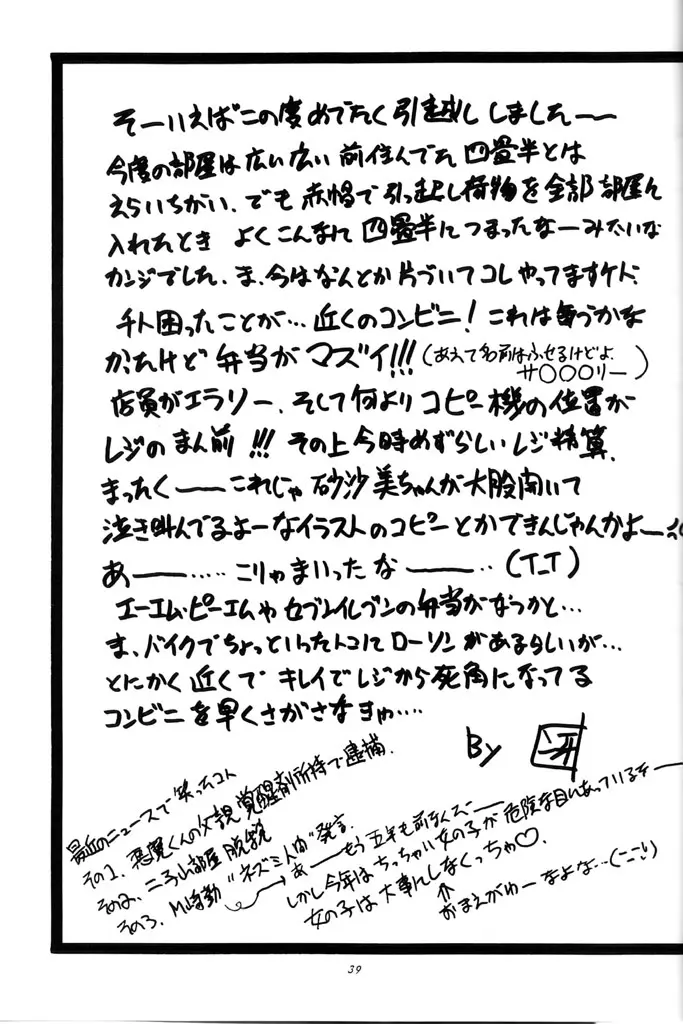 そーいえばこの度めでたく引越ししましたーー
今度の部屋は広い広い前住んでた四畳半とは
えらいちがい、でも赤帽で引っ起し荷物を全部部屋ん
入れたとき よくこんなに四畳半につまったなーみたいな
カンジでした、ま、今はなんとか片づいてコレやってますケド、
チト困ったことが…近くのコンビニ！これは毎うかな
かたけど弁当がマズイ!!!(あえて名前はふせるけどよ、
サ〇〇〇リー)
店員がエラソー、そして何よりコピー機の位置が
レジのまん前!!!その上今時めずらしいレジ精算、
まったくーーこれじゃ砂沙美ちゃんが大股開いて
泣き叫んでるよーなイラストのコピーとかできんじゃんかよー
あーー‥‥‥こりゃまいったなーー‥(T-T)
エーエム・ピーエムやセブンイレブンの弁当がなつかと…
ま、バイクでちょっといったトコにローソンがあるらしいが…
とにかく近くでキレイでレジから死角になってる
コンビニを早くさがさなきゅ‥‥
By
最近のニュースで笑ったコト
その1、悪魔くんの父親覚醒剤所持で逮捕、
その2、二子山部屋脱税
その3、M崎勤“ネズミ人間”発言、
あーーもう五年も前なんだーー
しかし今年はちっちゃい女の子が危険な目にあっているぞーー
女の子は大事にしなくっちゃ♡
⇑
おまえがゆーなよな…(こここ)
39